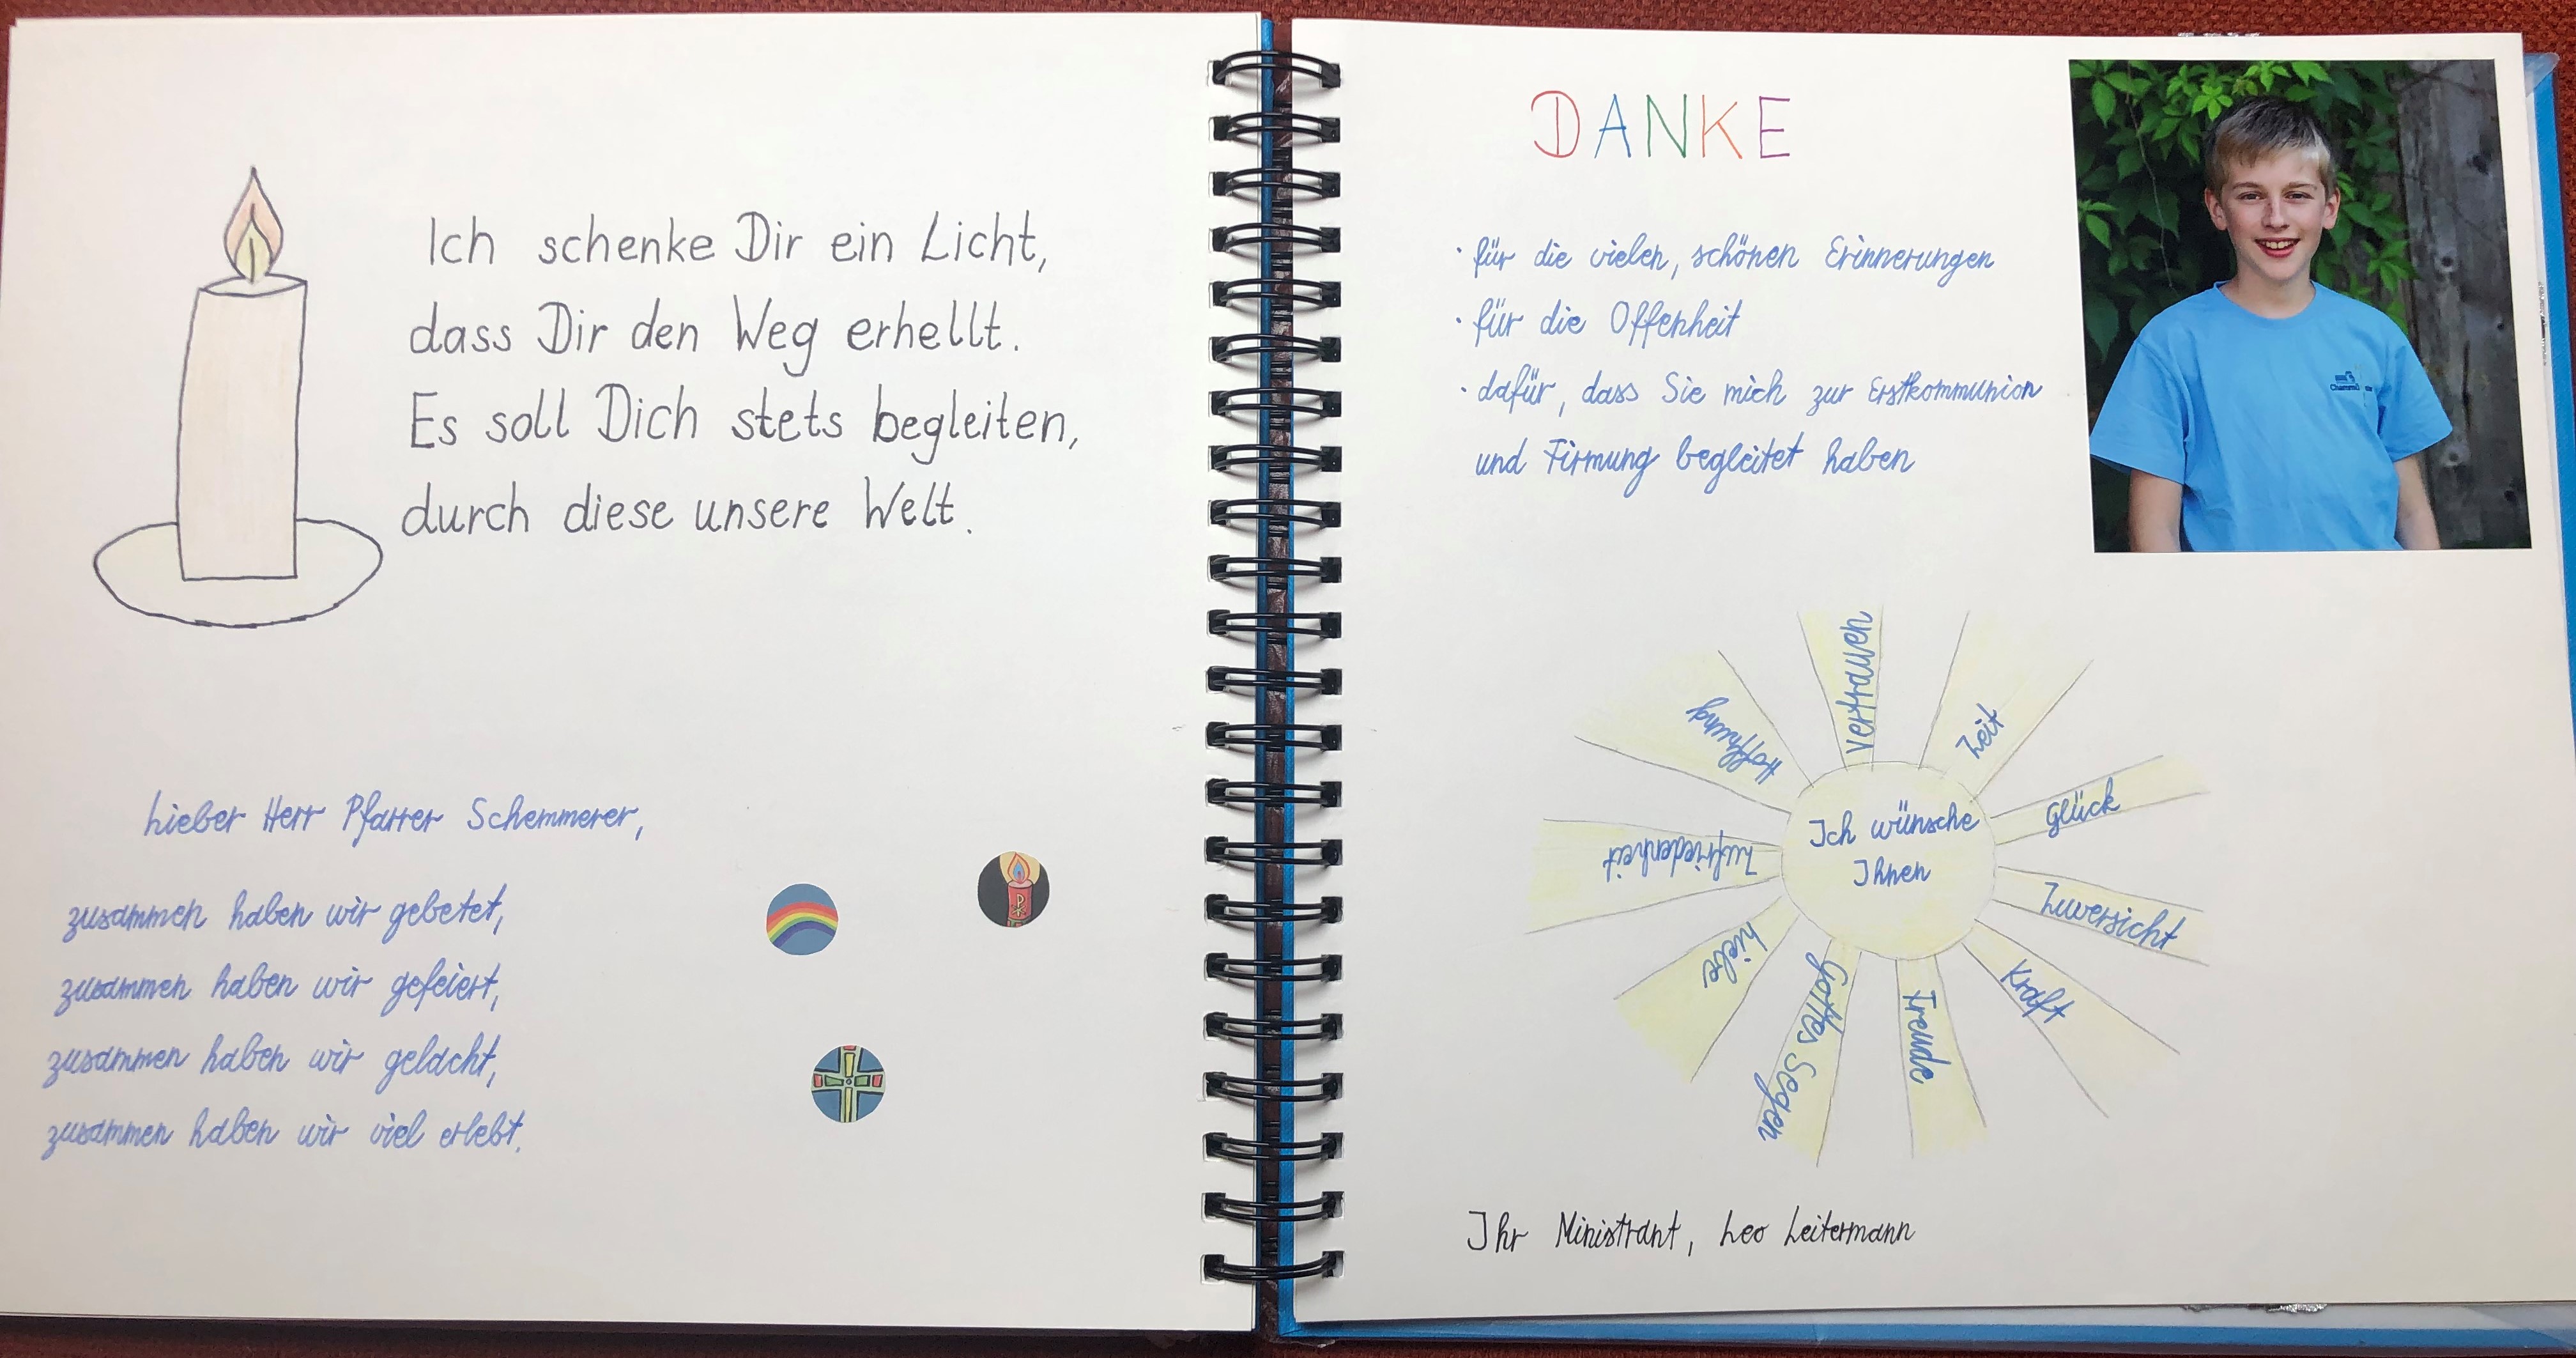 Ich schenke Dir ein Licht,
dass Dir den Weg erhellt.
Es soll Dich stets begleiten,
durch diese unsere Welt.
Lieber Herr Pfarrer Schemmerer,
zusammen haben wir gebetet,
zusammen haben wir gefeiert,
zusammen haben wir gelacht,
zusammen haben wir viel erlebt.
DANKE
· für die vielen, schönen Erinnerungen
· für die Offenheit
· dafür, dass Sie mich zur Erstkommunion
und Firmung begleitet haben
Ich wünsche
Ihnen
Vertrauen
Zeit
Glück
Zuversicht
Kraft
Freude
Gottes Segen
Liebe
Zufriedenheit
Hoffnung
Ihr Ministrant, Leo Leitermann